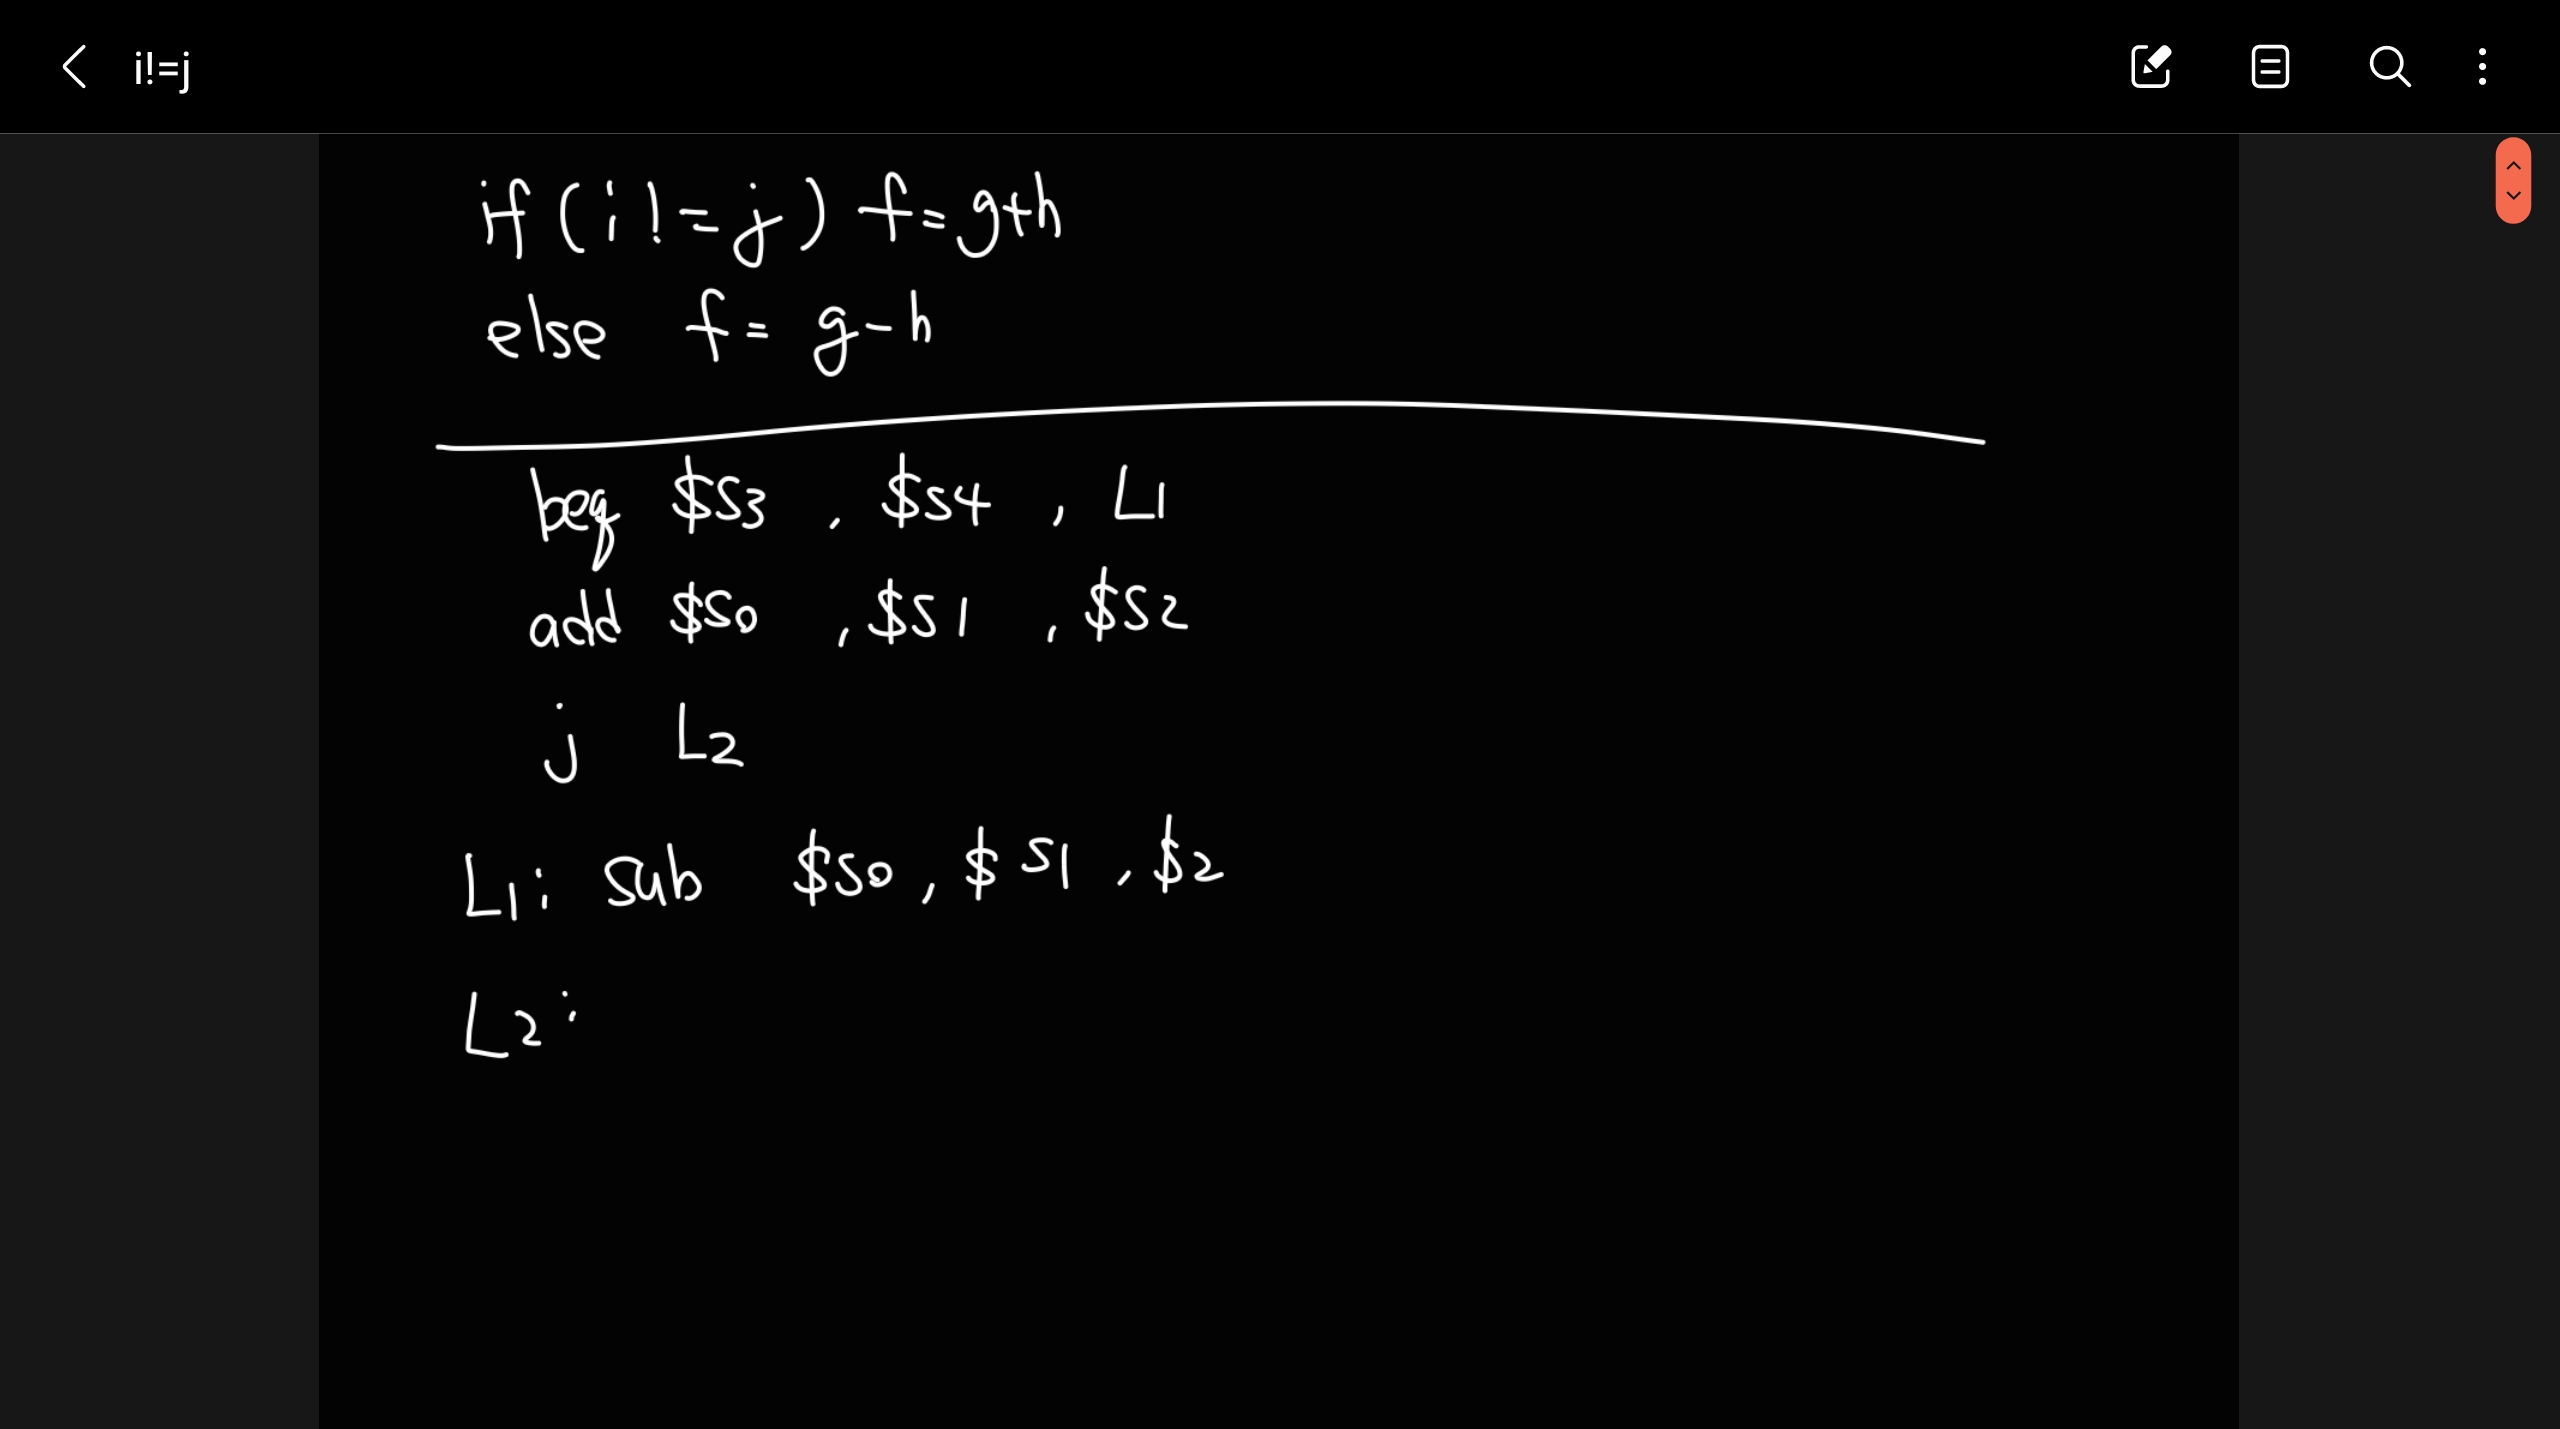 i!=j
if (i != j) f = g+h
else f = g-h
beq $S3, $S4, L1
add $S0, $S1, $S2
j L2
L1: Sub $S0, $S1, $2
L2: